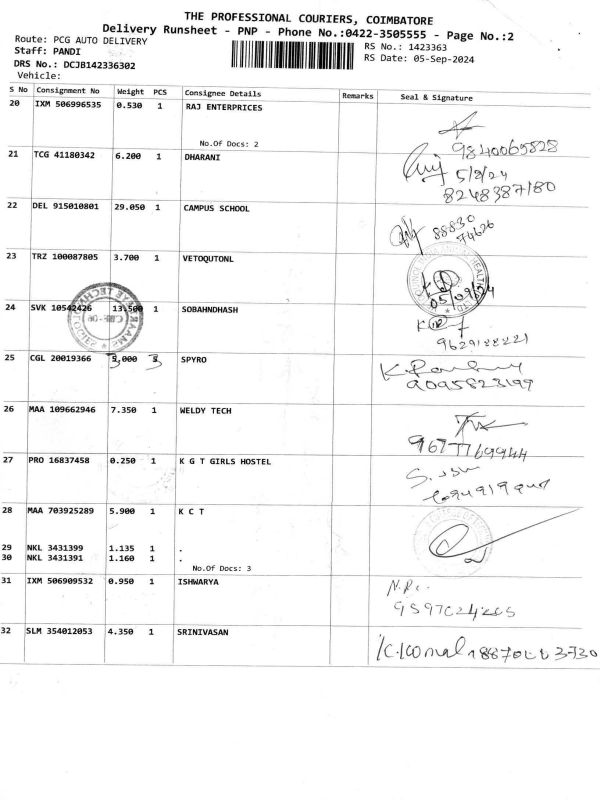 THE PROFESSIONAL COURIERS, COIMBATORE
Delivery Runsheet - PNP - Phone No.:0422-3505555 - Page No.:2
Route: PCG AUTO DELIVERY
RS No.: 1423363
Staff: PANDI
RS Date: 05-Sep-2024
DRS No.: DCJB142336302
Vehicle:
S No Consignment No Weight PCS Consignee Details Remarks Seal & Signature
20 IXM 506996535 0.530 1 RAJ ENTERPRICES
No.Of Docs: 2
9840065828
21 TCG 41180342 6.200 1 DHARANI
5/9/24
8248387180
22 DEL 915010801 29.050 1 CAMPUS SCHOOL
88830
74626
23 TRZ 100087805 3.700 1 VETOQUTONL
05/09/24
24 SVK 10542426 13.500 1 SOBAHNDHASH
25 CGL 20019366 3.000 3 SPYRO
9095823199
26 MAA 109662946 7.350 1 WELDY TECH
9677769944
27 PRO 16837458 0.250 1 K G T GIRLS HOSTEL
28 MAA 703925289 5.900 1 K C T
29 NKL 3431399 1.135 1 .
30 NKL 3431391 1.160 1 .
No.Of Docs: 3
31 IXM 506909532 0.950 1 ISHWARYA
32 SLM 354012053 4.350 1 SRINIVASAN